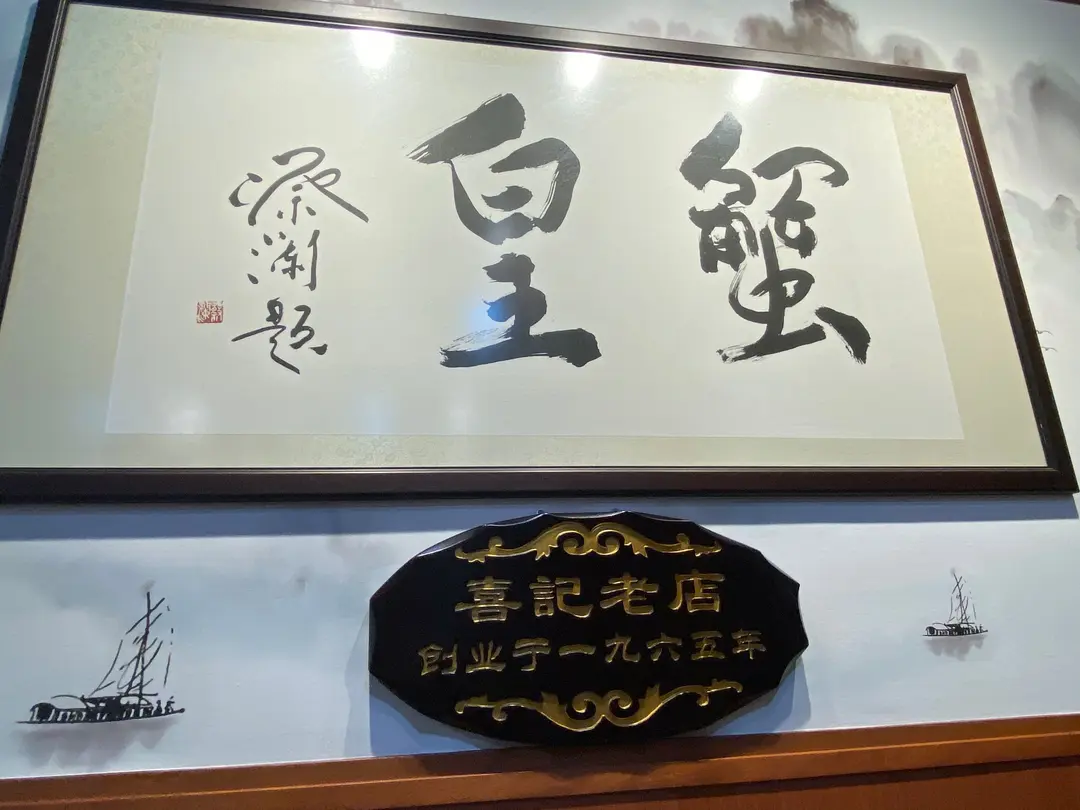 蟹皇
蔡瀾題
喜記老店
创业于一九六五年